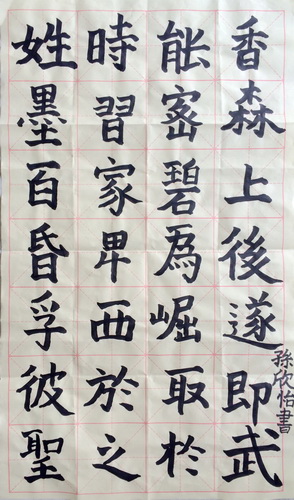 香森上後遂即武
能密碧為崛取扵
時習家卑西於之
姓墨百昏孚彼聖
孫欣怡書